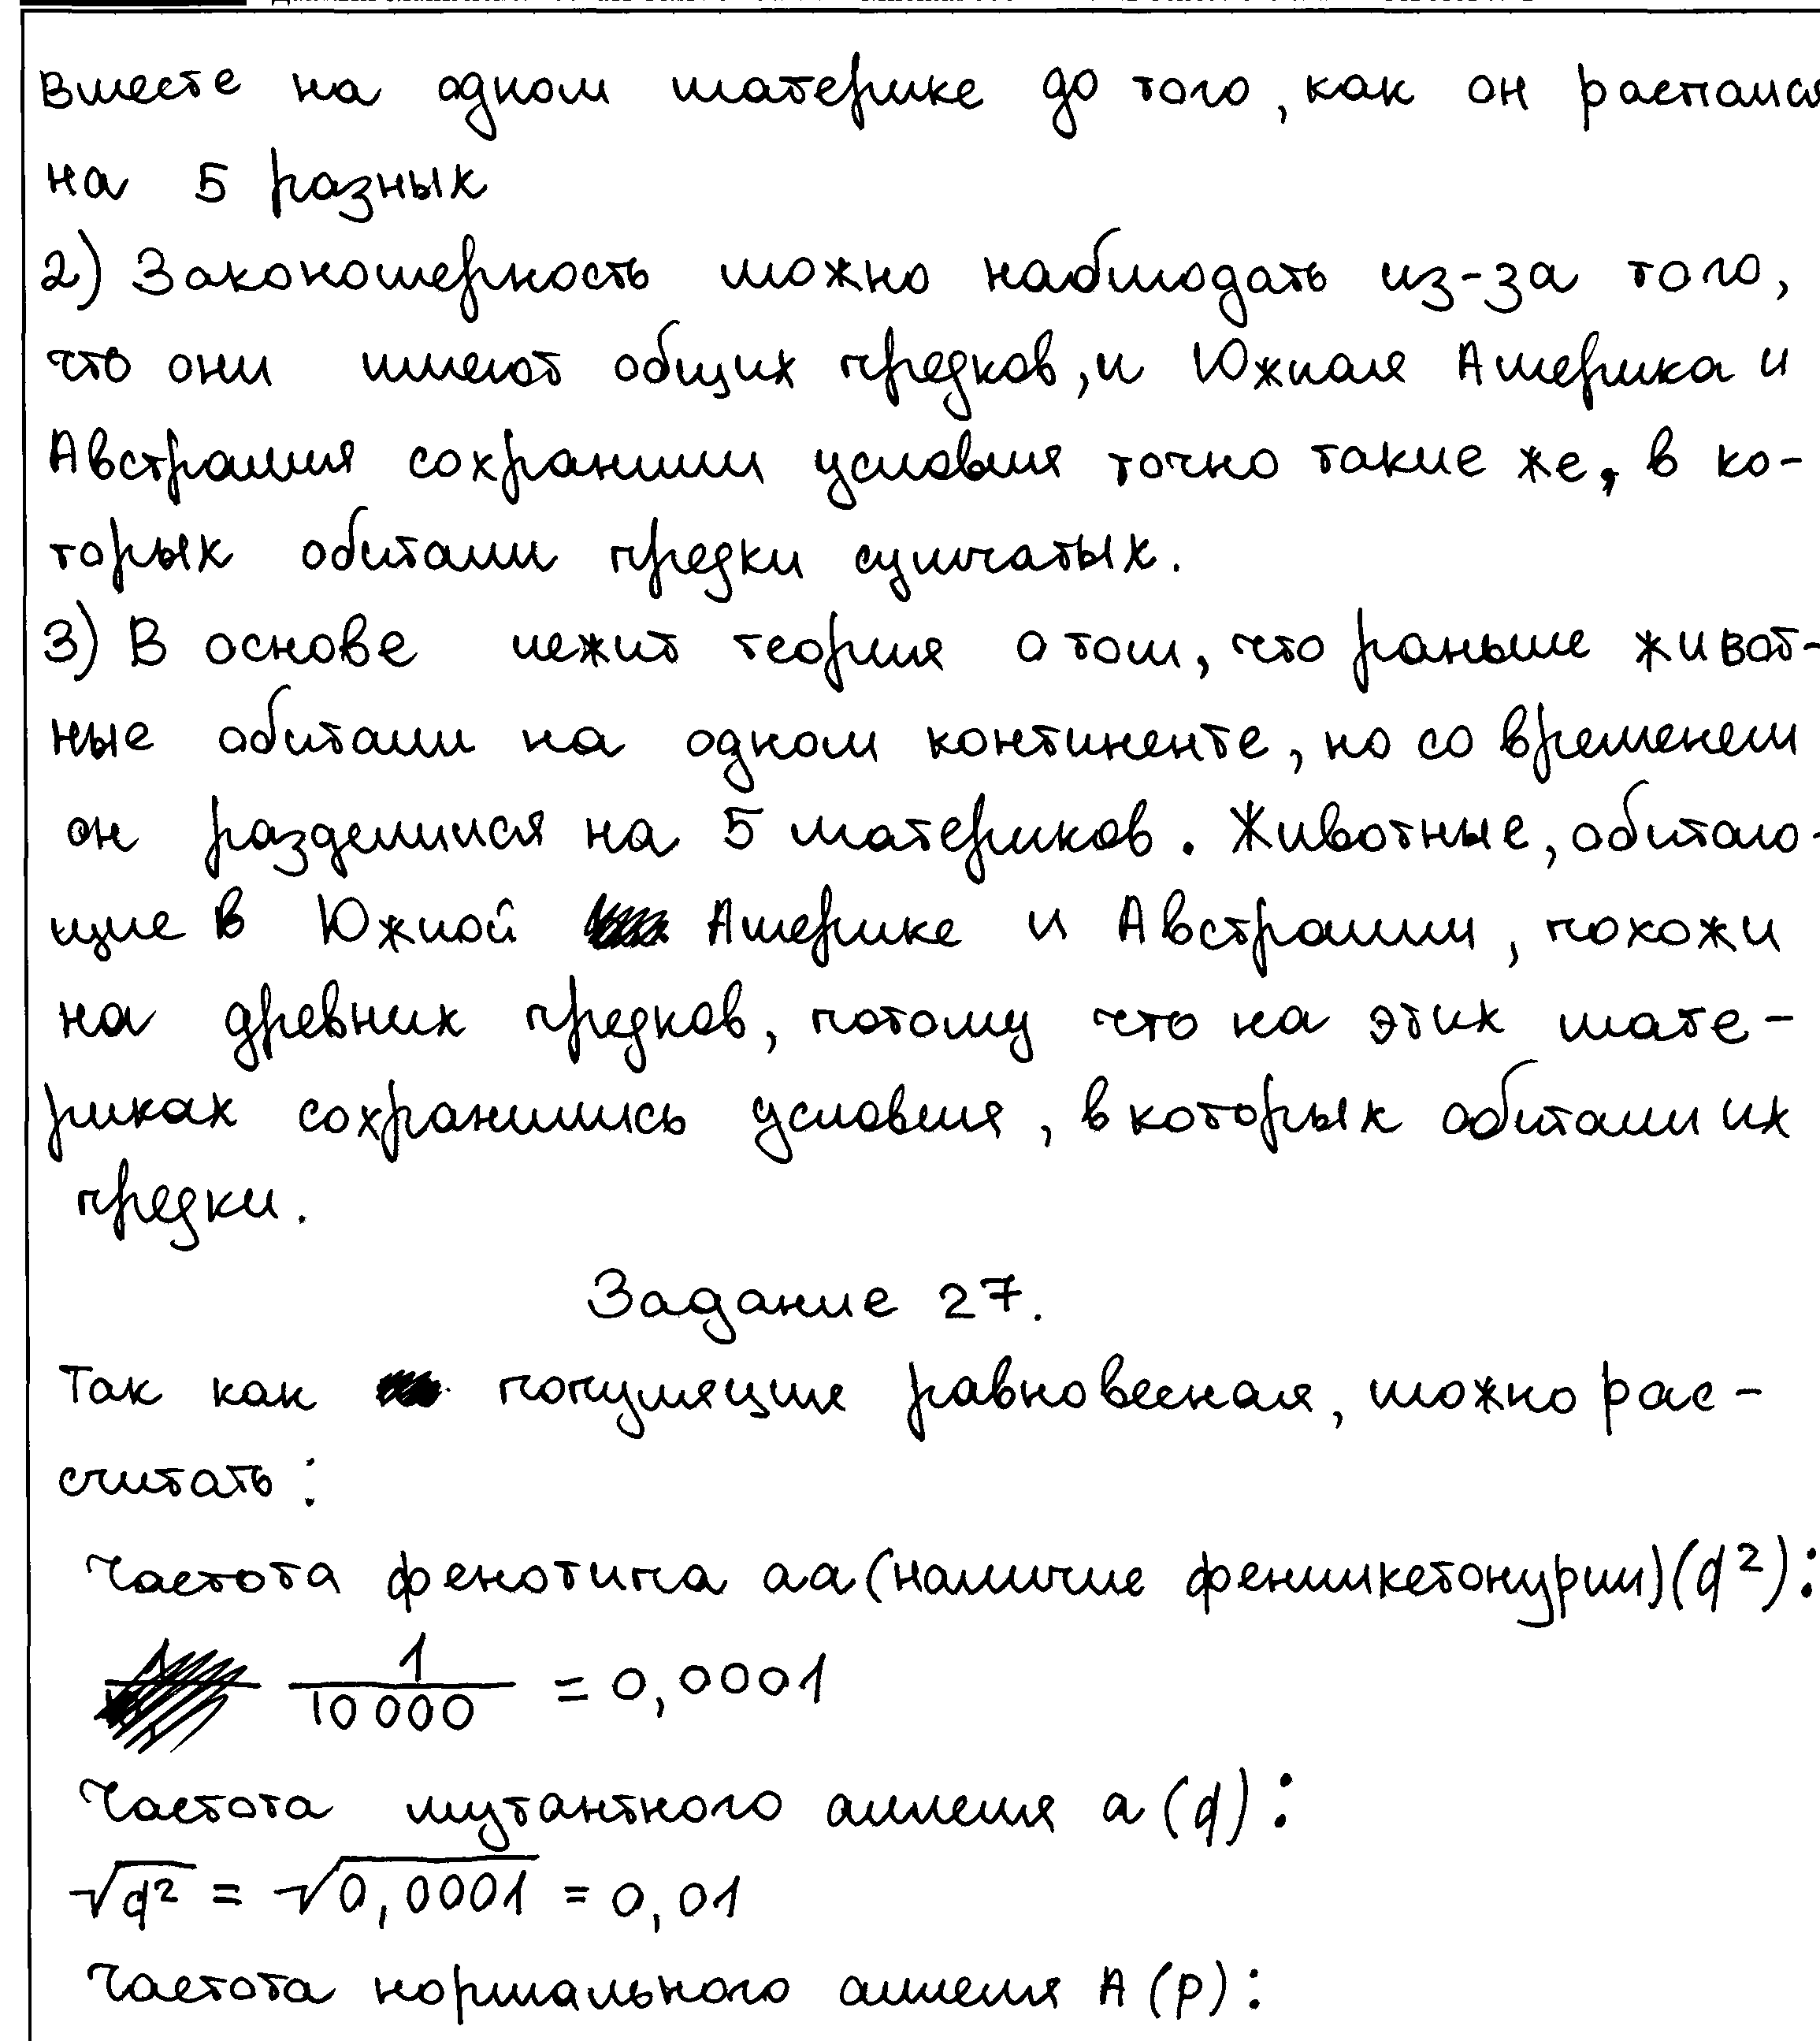 вместе на одном материке до того, как он распался
на 5 разных
2) Закономерность можно наблюдать из-за того,
что они имеют общих предков, и Южная Америка и
Австралия сохранили условия точно такие же, в ко-
торых обитали предки сумчатых.
3) В основе лежит теория о том, что раньше живот-
ные обитали на одном континенте, но со временем
он разделился на 5 материков. Животные, обитаю-
щие в Южной Америке и Австралии, похожи
на древних предков, потому что на этих мате-
риках сохранились условия, в которых обитали их
предки.
Задание 27.
Так как популяция равновесная, можно рас-
считать:
Частота фенотипа аа (наличие фенилкетонурии) (q²):
1/10 000 = 0,0001
Частота мутантного аллеля а (q):
√q² = √0,0001 = 0,01
Частота нормального аллеля А (p):